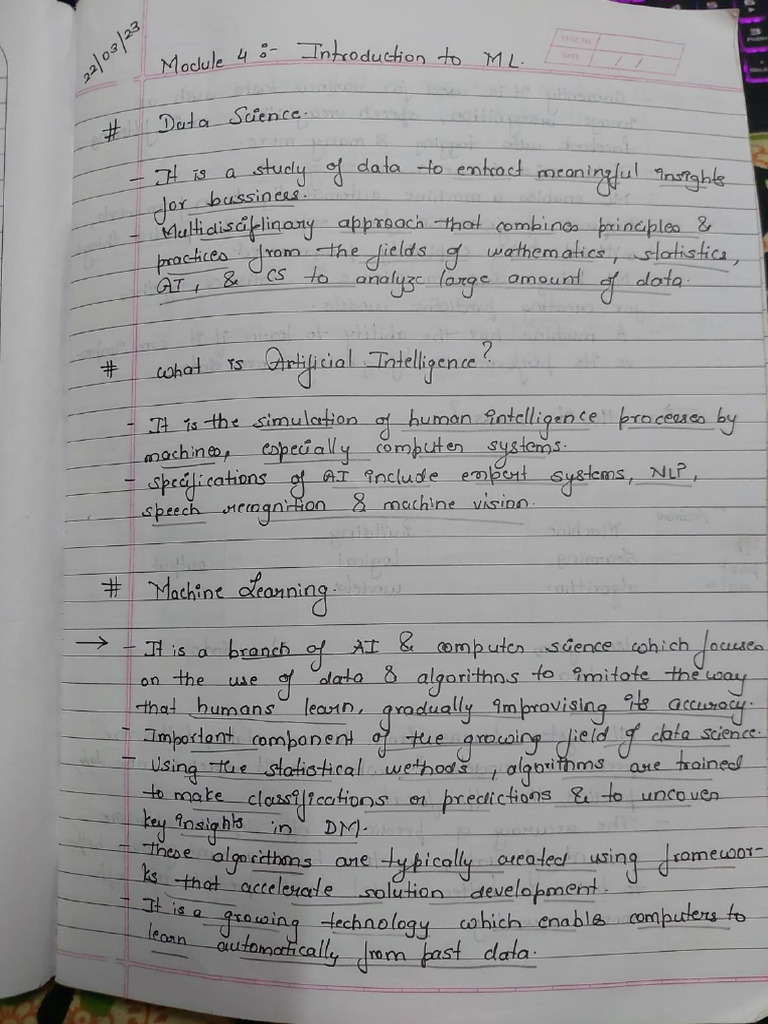 22/03/23
Module 4 :- Introduction to ML.
PAGE NO.
DATE / /
# Data Science.
- It is a study of data to extract meaningful insights
for bussiness.
- Multidisciplinary approach that combines principles &
practices from the fields of mathematics, statistics,
AI, & CS to analyze large amount of data.
# What is Artificial Intelligence?
- It is the simulation of human intelligence processes by
machines, especially computer systems.
- specifications of AI include expert systems, NLP,
speech recognition & machine vision.
# Machine Learning.
→ - It is a branch of AI & computer science which focuses
on the use of data & algorithms to imitate the way
that humans learn, gradually improvising its accuracy.
- Important component of the growing field of data science.
- Using the statistical methods, algorithms are trained
to make classifications or predictions & to uncover
key insights in DM.
- These algorithms are typically created using framewor-
ks that accelerate solution development.
- It is a growing technology which enables computers to
learn automatically from past data.